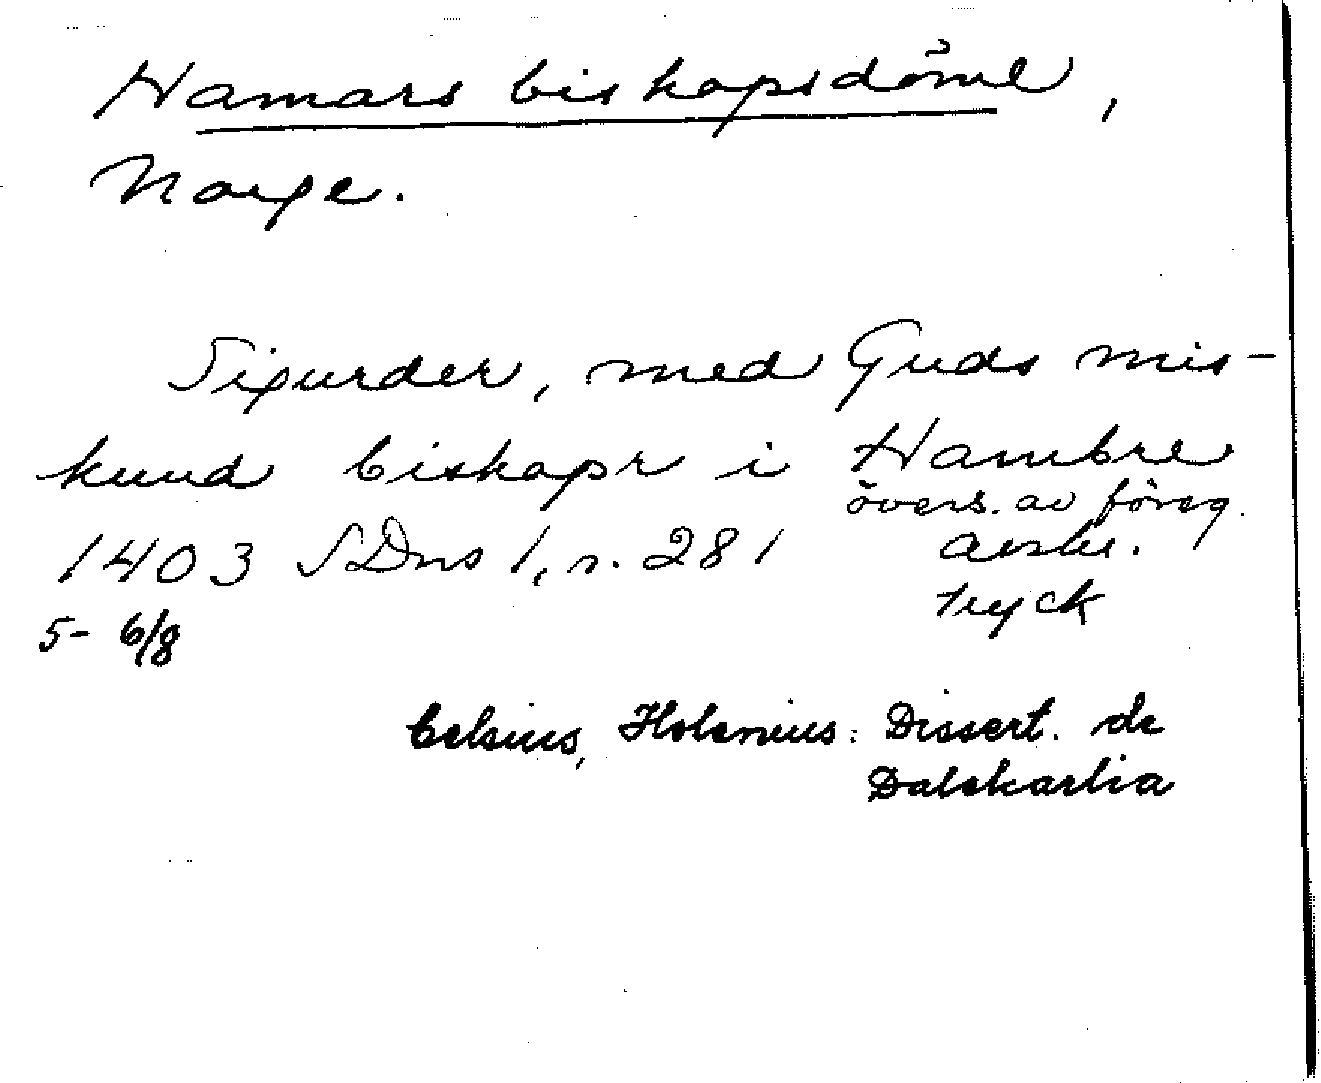 Hamars biskopsdöme,
Norge.
Sigurder, med Guds mis-
kund biskopr i Hambre
övers. av föreg.
1403 SDns 1, s. 281 avskr.
tryck
5-6/8
Celsius, Holenius: Dissert. de
Dalekarlia